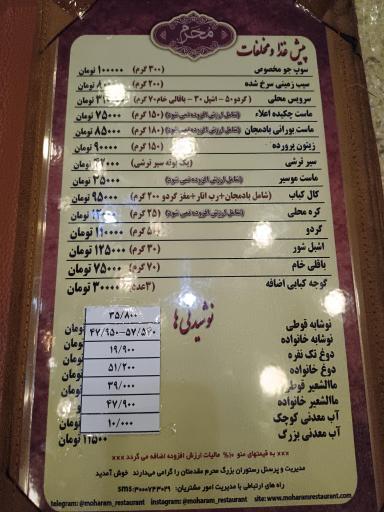 محرم
پیش غذا و مخلفات
سوپ جو مخصوص (۳۰۰ گرم) ۱۰۰۰۰۰ تومان
سیب زمینی سرخ شده (۲۰۰ گرم) تومان
سرویس محلی (گردو۵۰ - اشپل ۳۰ - باقالی خام۷۰ گرم) تومان
ماست چکیده اعلاء (شامل ارزش افزوده نمی شود) (۱۵۰ گرم) ۷۵۰۰۰ تومان
ماست بورانی بادمجان (شامل ارزش افزوده نمی شود) (۱۸۰ گرم) ۸۵۰۰۰ تومان
زیتون پرورده (۱۵۰ گرم) ۹۰۰۰۰ تومان
سیر ترشی (یک بوته سیر ترشی) تومان
ماست موسیر (شامل ارزش افزوده نمی شود) ۳۵۰۰۰ تومان
کال کباب (شامل بادمجان+رب انار+مغز گردو ۲۰۰ گرم) ۹۵۰۰۰ تومان
کره محلی (شامل ارزش افزوده نمی شود) (۲۵ گرم) تومان
گردو گرم) تومان
اشپل شور (۳۰ گرم) ۱۲۵۰۰۰ تومان
باقلی خام (۷۰ گرم) ۷۵۰۰۰ تومان
گوجه کبابی اضافه (۳عدد) ۳۰۰۰۰ تومان
نوشیدنی ها
نوشابه قوطی ۳۵/۸۰۰ تومان
نوشابه خانواده ۴۷/۹۵۰-۵۷/۵۶۰ تومان
دوغ تک نفره ۱۹/۹۰۰ تومان
دوغ خانواده ۵۱/۲۰۰ تومان
ماالشعیر قوطی ۳۹/۰۰۰ تومان
ماالشعیر خانواده ۴۷/۹۰۰ تومان
آب معدنی کوچک ۱۰/۰۰۰ تومان
آب معدنی بزرگ تومان
××× به قیمتهای منو ۱۰٪ مالیات ارزش افزوده اضافه می گردد ×××
مدیریت و پرسنل رستوران بزرگ محرم مقدمتان را گرامی می‌دارند خوش آمدید
راه های ارتباطی با مدیریت امور مشتریان: sms:۳۰۰۰۷۴۳۰۲۹
telegram: @moharam_restaurant instagram: @moharam_restaurant site: www.moharamrestaurant.com